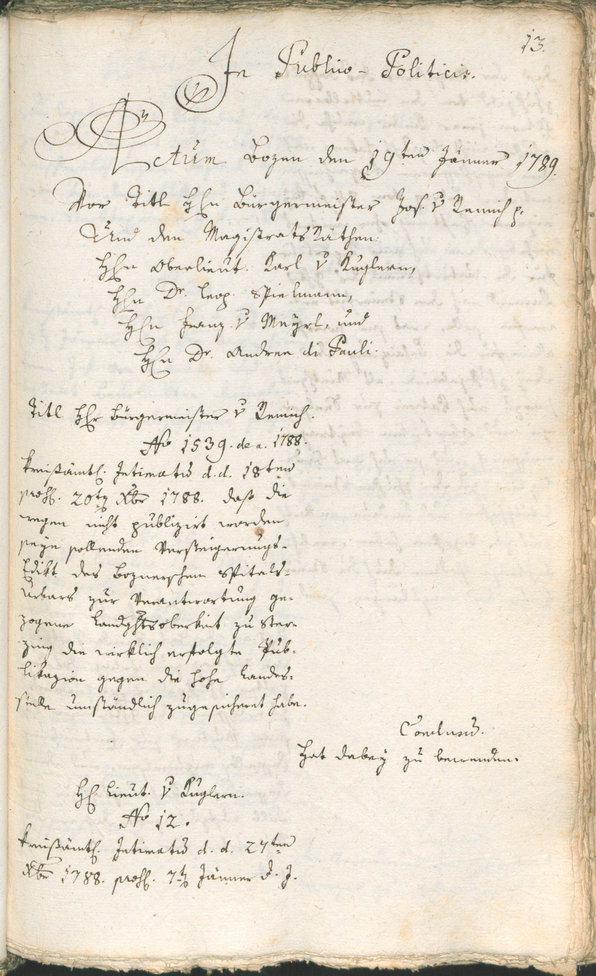 13.
In Publico-Politicis.
Actum Bozen den 19ten Jänner 1789.
Vor Titl Hhn Bürgermeister Jos. v Remich p.
Und den Magistrats Räthen
Hhn Oberlieut. Karl v Kuglern,
Hhn Dr. Leop. Spielmann,
Hhn Franz v Mayrl, und
Hhn Dr. Andreen di Pauli.
Titl Hhr Bürgermeister v Remich.
No 1539. de a. 1788.
Kreisämtl. Intimatum d.d. 18ten
10br 1788. daß die
wegen nicht publizirt worden
seyn sollenden Versteigerungs-
Edikt des Boznerschen Spitals-
Urbars zur Verantwortung ge-
zogene Landghtsoberkeit zu Ster-
zing die wirklich erfolgte Pub-
likazion gegen die hohe Landes-
stelle umständlich zugesichert habe.
Conclusum.
Hat dabey zu bewenden.
Hh Lieut. v Kuglern.
No 12.
Kreisämtl. Intimatum d. d. 27ten
Xbr 1788. 7t Jänner d. J.